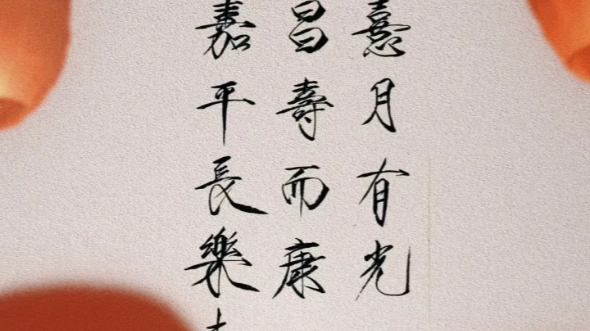 憙月有光
昌壽而康
嘉平長樂